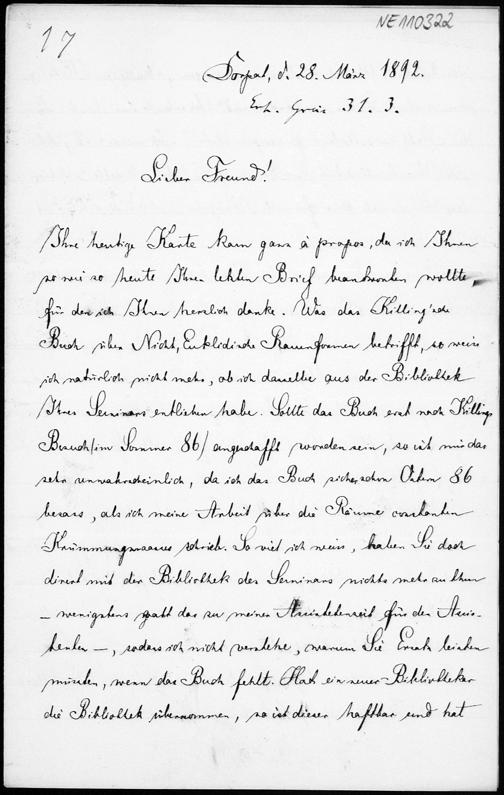 17
NE110322
Dorpat, d. 28. März 1892.
Erh. 31. 3.
Lieber Freund!
Ihre heutige Karte kam ganz à propos, da ich Ihnen
so wie so heute Ihren letzten Brief beantworten wollte,
für den ich Ihnen herzlich danke. Was das Killing'sche
Buch über Nicht-Euklidische Raumformen betrifft, so weiss
ich natürlich nicht mehr, ob ich dasselbe aus der Bibliothek
Ihres Seminars entliehen habe. Sollte das Buch erst nach Killings
Besuch (im Sommer 86) angeschafft worden sein, so ist mir das
sehr unwahrscheinlich, da ich das Buch sicher schon Ostern 86
besass, als ich meine Arbeit über die Räume constanten
Krümmungsmasses schrieb. So viel ich weiss, haben Sie doch
direct mit der Bibliothek des Seminars nichts mehr zu thun
– wenigstens galt das zu meiner Assistentenzeit für den Assis-
tenten –, sodass ich nicht verstehe, warum Sie Ersatz leisten
müssten, wenn das Buch fehlt. Hat ein neuer Bibliothekar
die Bibliothek übernommen, so ist dieser haftbar und hat